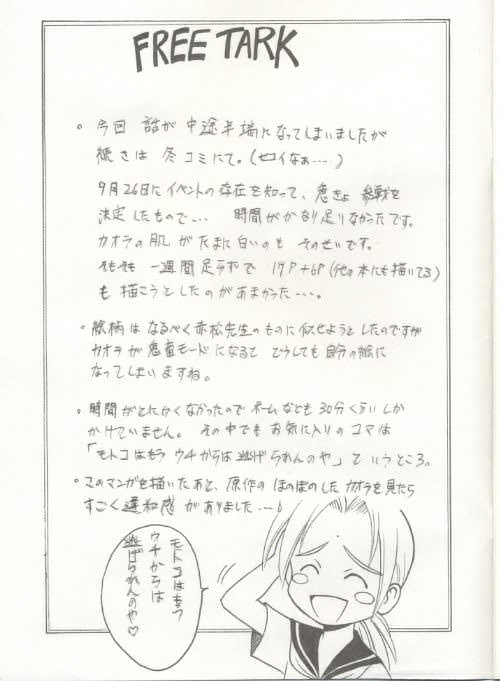 FREE TARK
。今回 話が 中途半端になってしまいましたが
続きは 冬コミにて。(セコイなぁ‥‥)
9月26日にイベントの存在を知って、急きょ 参戦を
決定したもので‥‥ 時間がかなり足りなかたです。
カオラの肌 がたまに白いのも そのせいです。
そもそも 一週間足らずで 17P+6P(他の本にも描いてる)
も 描こうとしたのがあまかった‥‥。
。絵柄は なるべく赤松先生のものに似せようとしたのですが
カオラが鬼畜モードになると どうしても自分の絵に
なってしまいますね。
。時間がとにかくなかったので ネームなども 30分くらいしか
かけていません。 その中でも お気に入りの コマは
「モトコはもう ウチからは 逃げられんのや」と いうところ。
。このマンガを描いたあと、原作の ほのぼのした カオラを見たら
すごく 違和感 がありました‥‥
モトコはもう
ウチからは
逃げられんのや♡